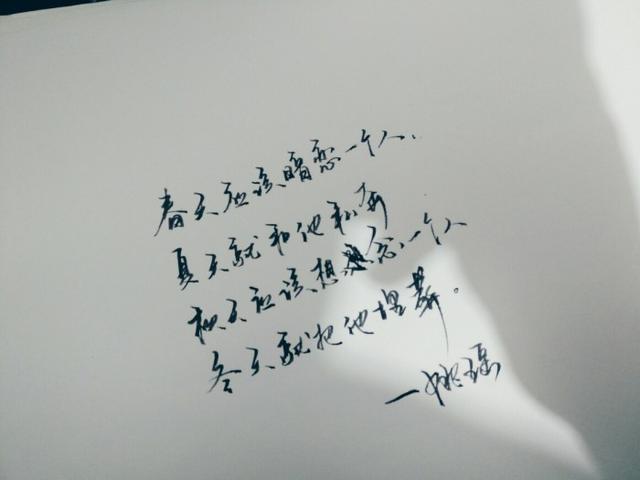 春天应该暗恋一个人.
夏天就和他私奔
秋天应该想念一个人
冬天就把他埋葬。
—姚瑶